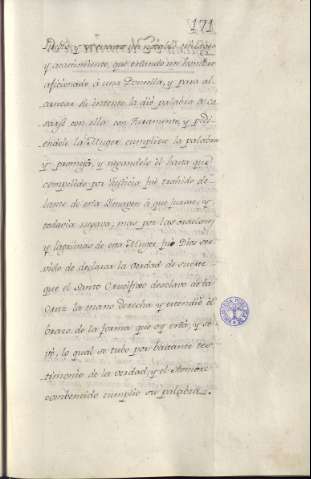 171
y acaecimiento, que estando un hombre
aficionado à una Doncella, y para al-
canzar su intento la dió palabra de ca-
sarse con ella con Juramento, y pidi-
endole la Muger cumpliese la palabra
y promesa, y negandole él hasta que
compelido por Justicia fué trahido de-
lante de esta Imagen à que jurase, y
todavia negava, mas por las oraciones
y lagrimas de esta Muger fué Dios ser-
vido de declarar la verdad de suerte
que el Santo Crucifixo desclavo de la
Cruz la mano derecha y estendió el
brazo de la forma que oy está, y se
vé, lo qual se tubo por bastante tes-
timonio de la verdad, y el Hombre
combencido cumplio su palabra.